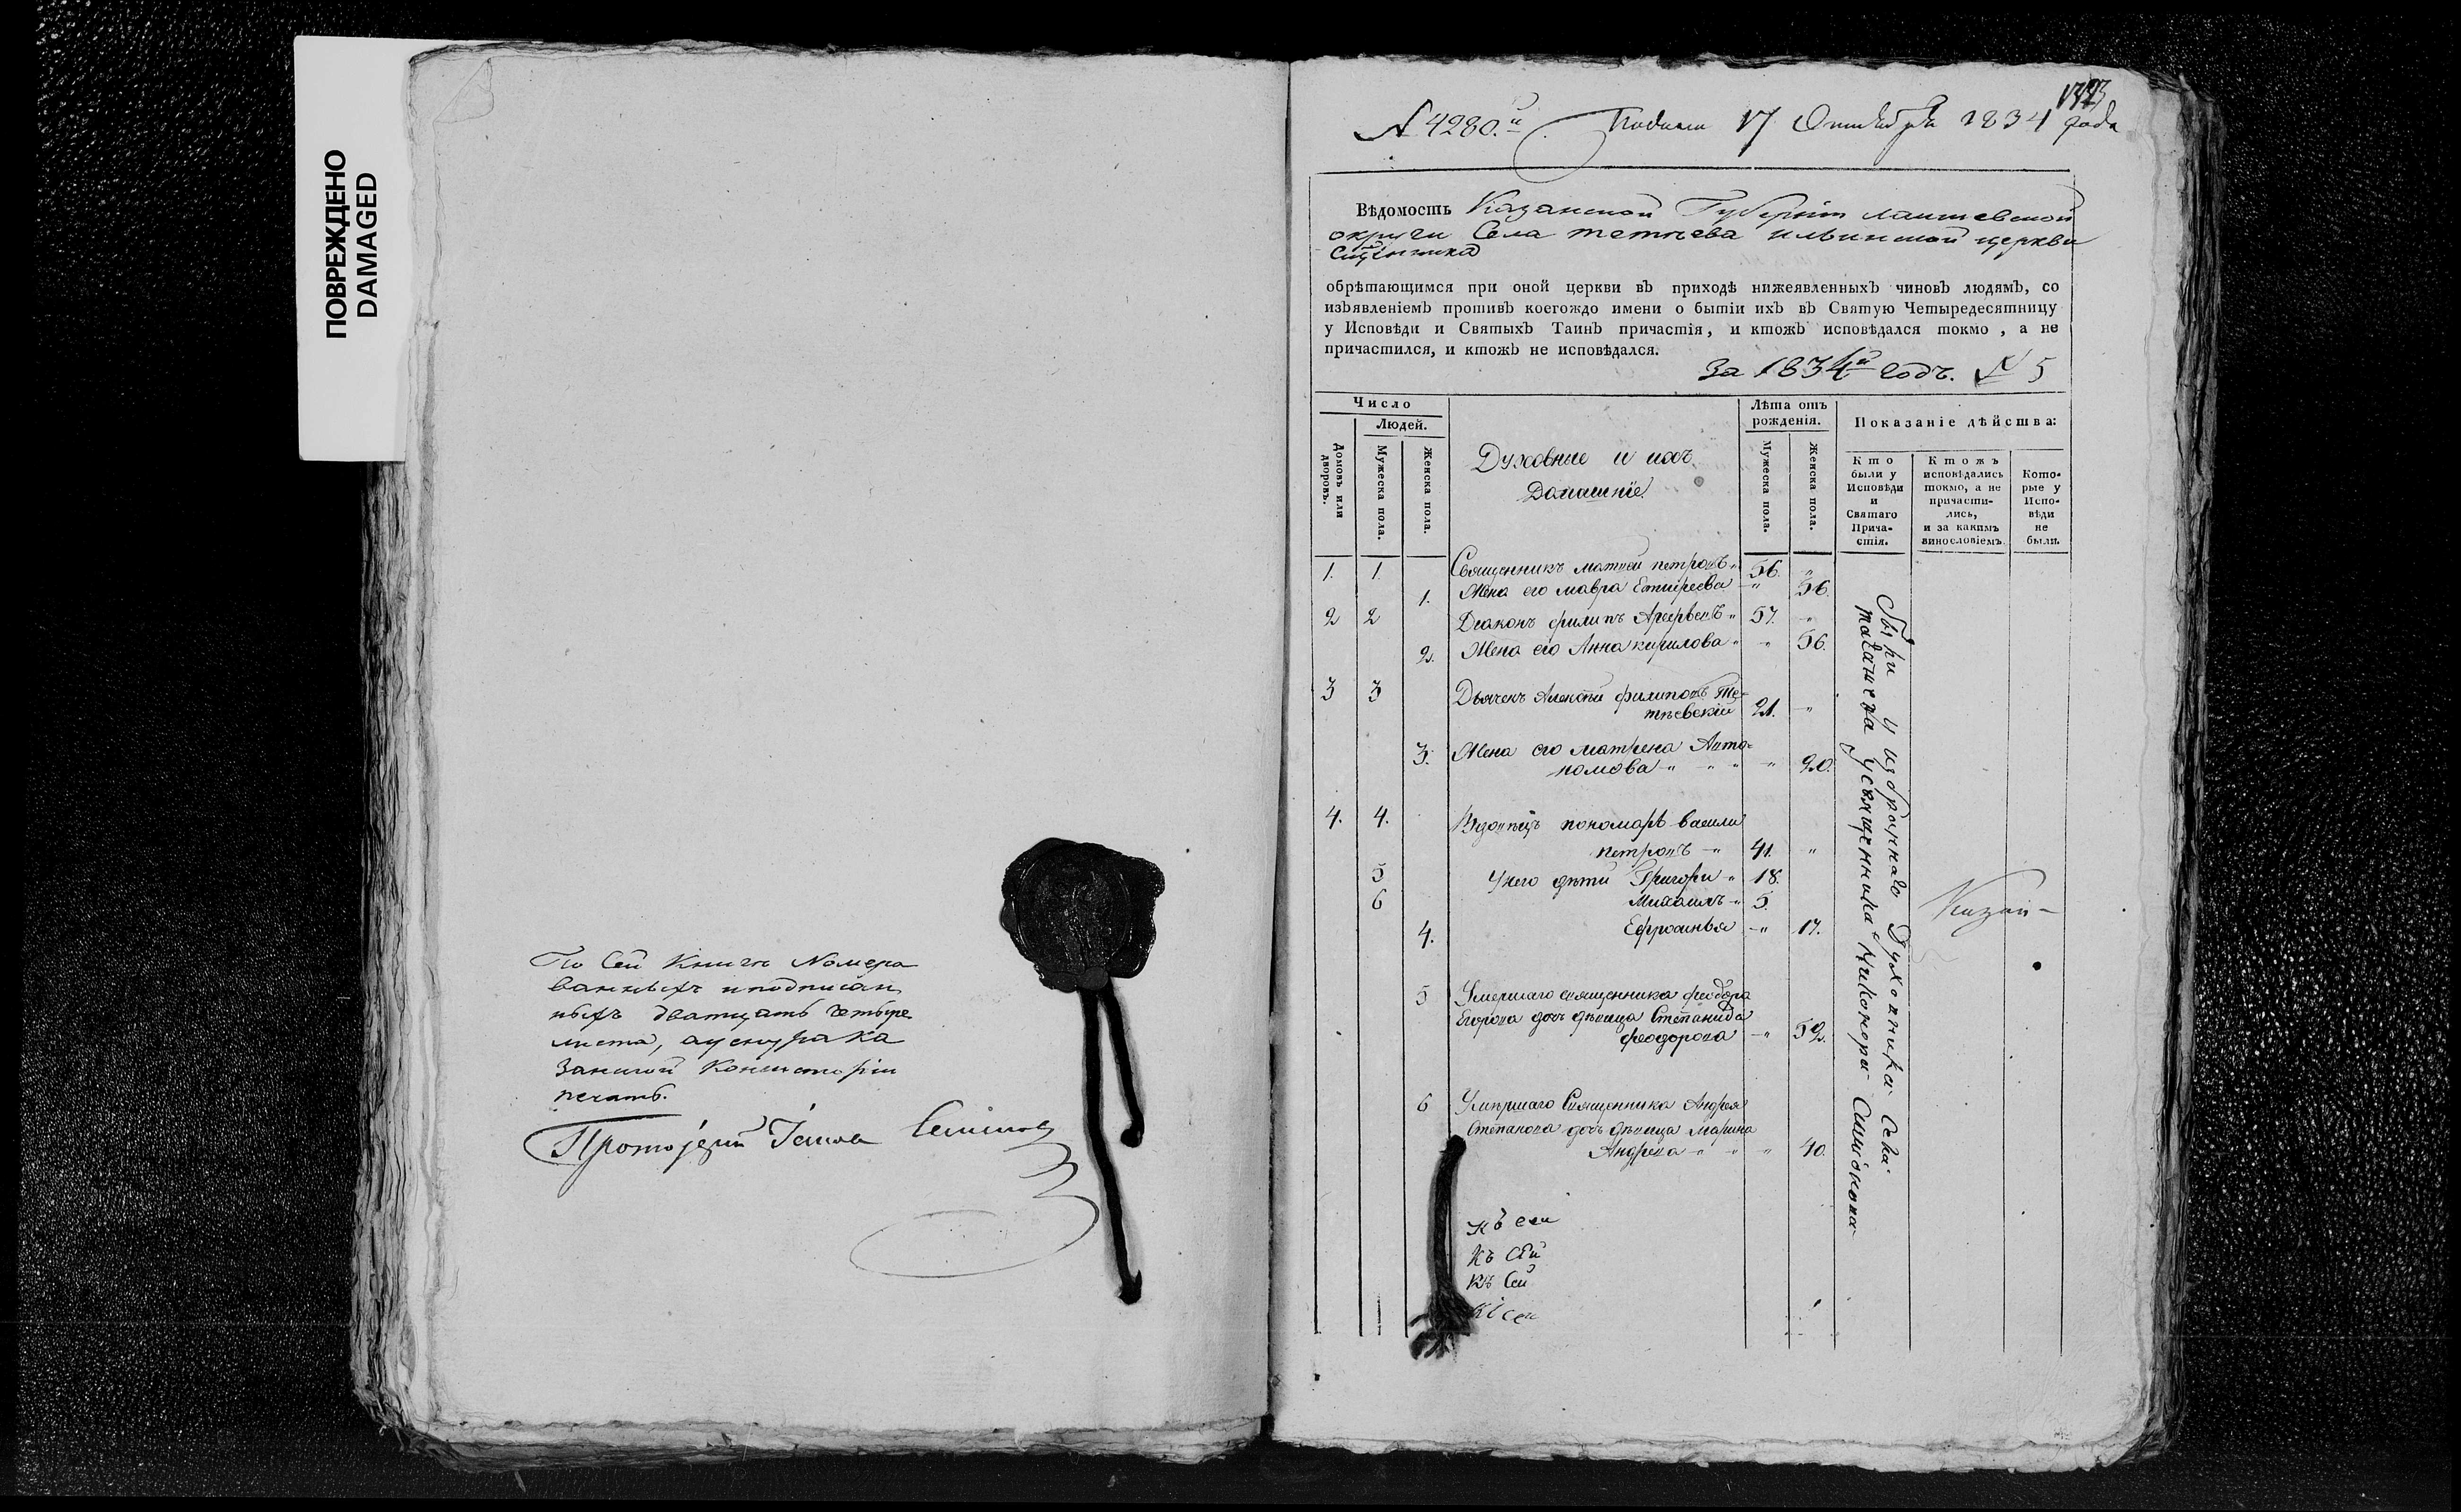 ПОВРЕЖДЕНО
DAMAGED
По сей книге Номера
ванныхъ и подписан
ныхъ дватцать четыре
листа, аушнурака
Занитой Консисторіи
печать.
№ 4280.й Подана 17 Октября 1834 года
Вѣдомость Казанской Губерніи лаишевской
округи Села тетѣева ильинской церкви
обрѣтающимся при оной церкви въ приходѣ нижеявленныхъ чиновъ людямъ, со
изъявленіемъ противъ коегождо имени о бытіи ихъ въ Святую Четыредесятницу
у Исповѣди и Святыхъ Таинъ причастія, и ктожъ исповѣдался токмо, а не
причастился, и ктожъ не исповѣдался.
За 1834й годъ. № 5
Число
Людей.
Домовъ или дворовъ.
Мужеска пола.
Женска пола.
Духовные и ихъ
Домашніе
Лѣта отъ
рожденія.
Мужеска пола.
Женска пола.
Показаніе дѣйства:
Кто
были у
Исповѣди
и
Святаго
Прича-
стія.
Ктожъ
исповѣдались
токмо, а не
причасти-
лись,
и за какимъ
винословіемъ.
Кото-
рые у
Испо-
вѣди
не
были.
1. 1. Священникъ матѳей петровъ 56.
1. Жена его мавра 56.
2 2 Діаконъ филипъ 57.
2. Жена его Анна кирилова 56.
3 3 Дьячекъ Алексѣй филиповъ Те-
тѣевскій 21.
3. Жена его матрена Анто-
номова 20.
4. 4. Вдовецъ пономарь васили
петровъ 41.
5 У него дѣти Григори 18.
6 Михаилъ 5.
4. Ефросинья 17.
5 Умершаго священника феодора
Егорова дочь дѣвица Степанида
феодорова 52.
6 Умершаго Священника Андрея
Степанова дочь дѣвица Марина
Андрѣева 40.
Къ сей
Къ Сей
Къ Сей
Къ сей